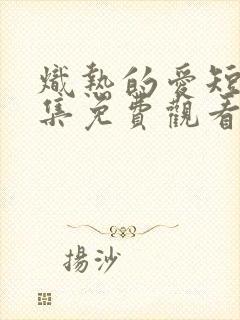 熾熱的愛短
集免費觀看
揚沙